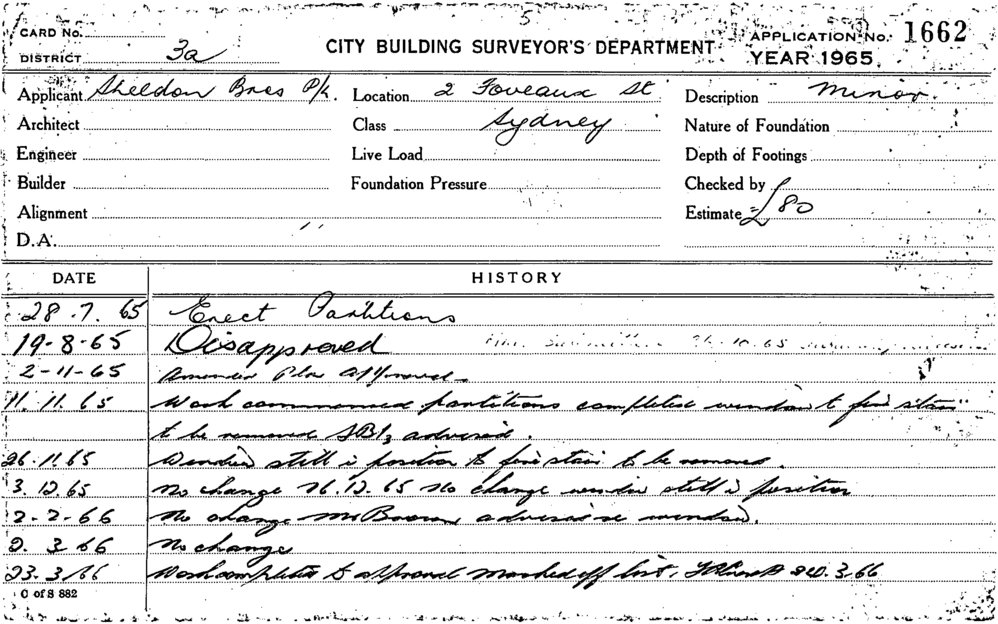 5
CARD No.
CITY BUILDING SURVEYOR'S DEPARTMENT
APPLICATION No. 1662
DISTRICT 3a
YEAR 1965
Applicant Sheldon Bros P/L. Location 2 Foveaux St Description Minor.
Architect Class Sydney Nature of Foundation
Engineer Live Load Depth of Footings
Builder Foundation Pressure Checked by
Alignment Estimate £80
D.A.
DATE HISTORY
28.7.65 Erect Partitions
19-8-65 Disapproved 26-10-65
2-11-65 Amended Plan Approved
11.11.65 Work commenced partitions completed window to fire stair
to be removed advised.
26.11.65 Window still in position to fire stair to be removed.
3.12.65 No change 16.12.65 No change window still in position
2-2-66 No change Mr window.
2.3.66 No change
23.3.66 Work completed to approval marked off list. 3.66
C of S 882